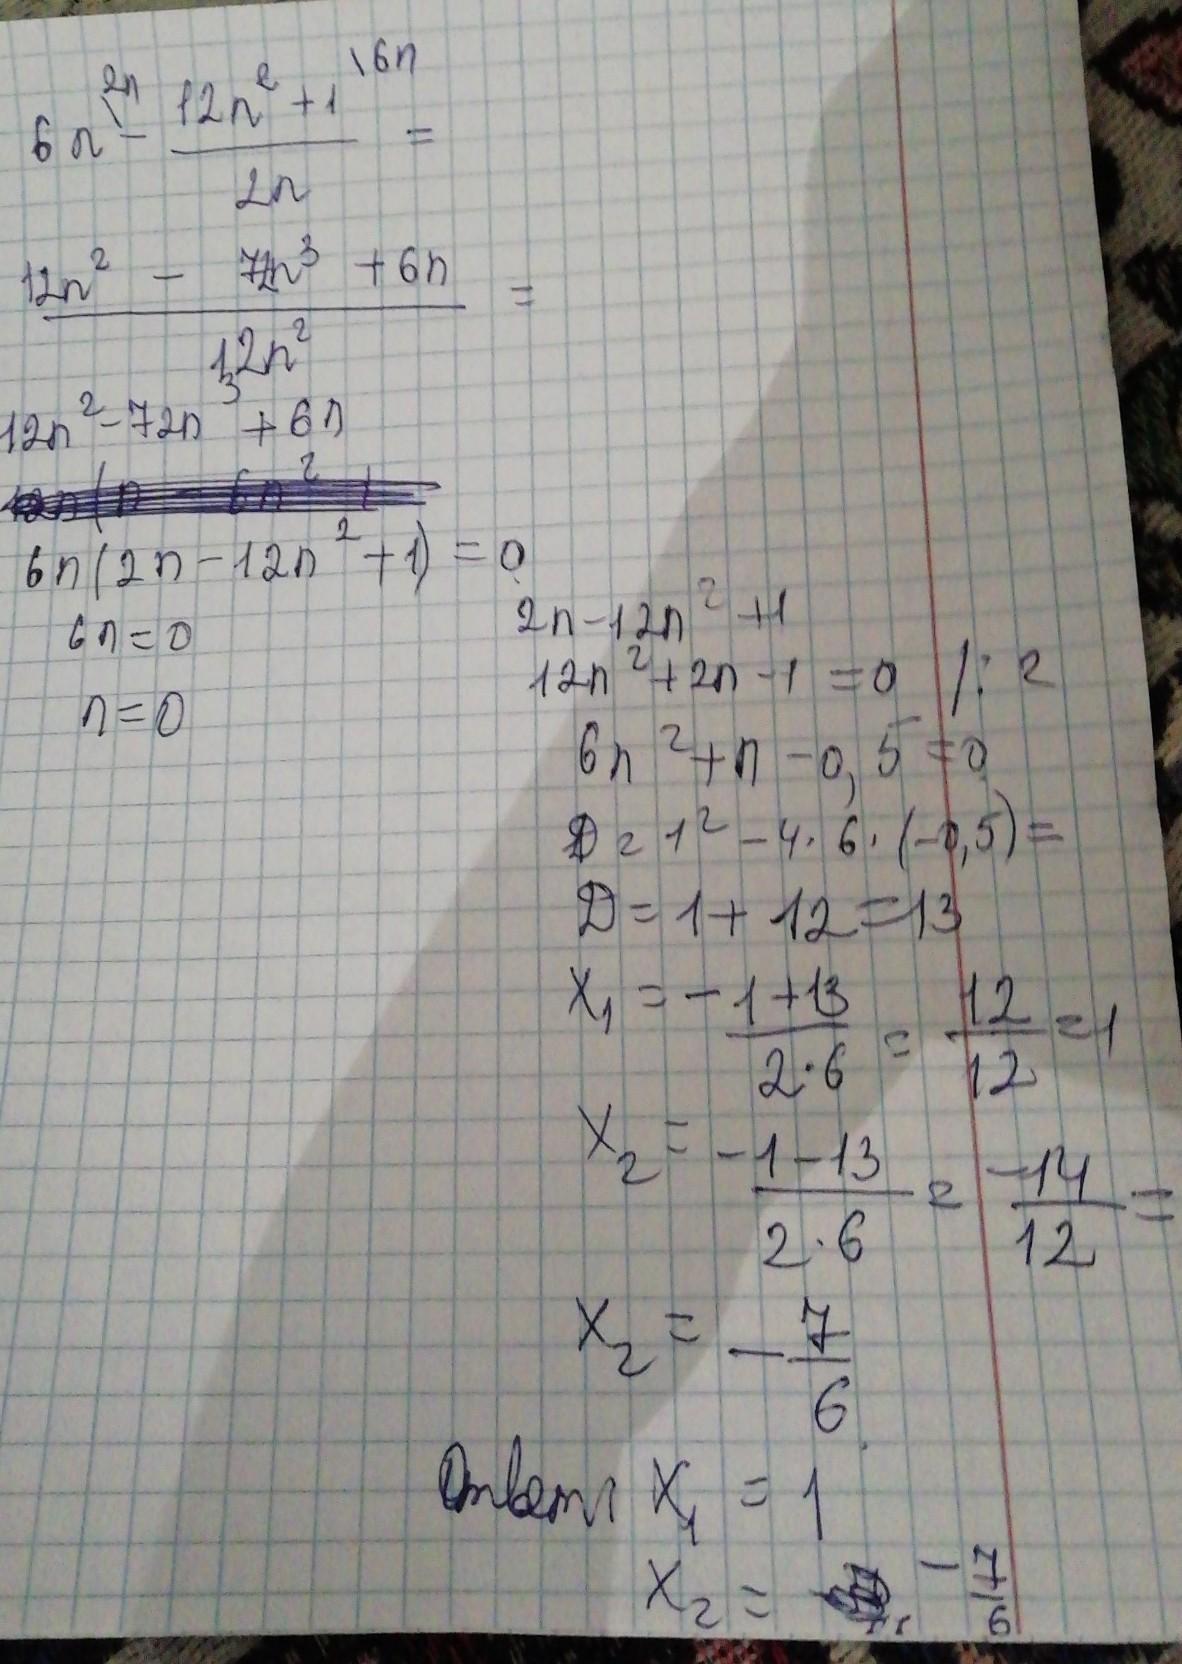 6n\2n - (12n² + 1)/(2n) \6n =
(12n² - 72n³ + 6n)/(12n²) =
12n² - 72n³ + 6n
6n(2n - 12n² + 1) = 0
6n = 0
n = 0
2n - 12n² + 1
12n² + 2n - 1 = 0 /: 2
6n² + n - 0,5 = 0
D = 1² - 4 · 6 · (-0,5) =
D = 1 + 12 = 13
X₁ = (-1 + 13)/(2 · 6) = 12/12 = 1
X₂ = (-1 - 13)/(2 · 6) = -14/12 =
X₂ = -7/6
Ответ: X₁ = 1
X₂ = -7/6